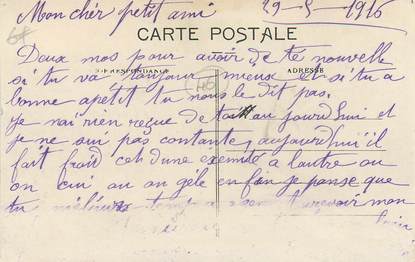 Mon cher petit ami 29-5-1916
CARTE POSTALE
Deux mos pour avoir de te nouvelle
CORRESPONDANCE ADRESSE
si tu va toujour mieux et si tu a
bonne apetit tu nous le dit pas.
je n'ai rien reçue de toi au jourd'hui et
je ne sui pas contante, aujourd'hui il
fait fraid cet d'une exemité a l'autre ou
on cui ou on gèle enfin je panse que
tu
mon